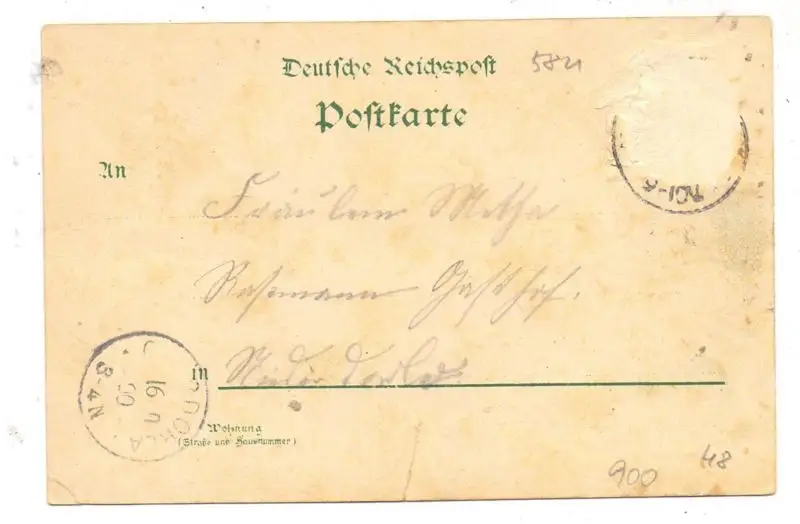 Deutsche Reichspost
584
Postkarte
An
Fräulein Metha
Gasthof.
in Nieder
Wohnung
(Straße und Hausnummer)
3-4N
16
00
900
48